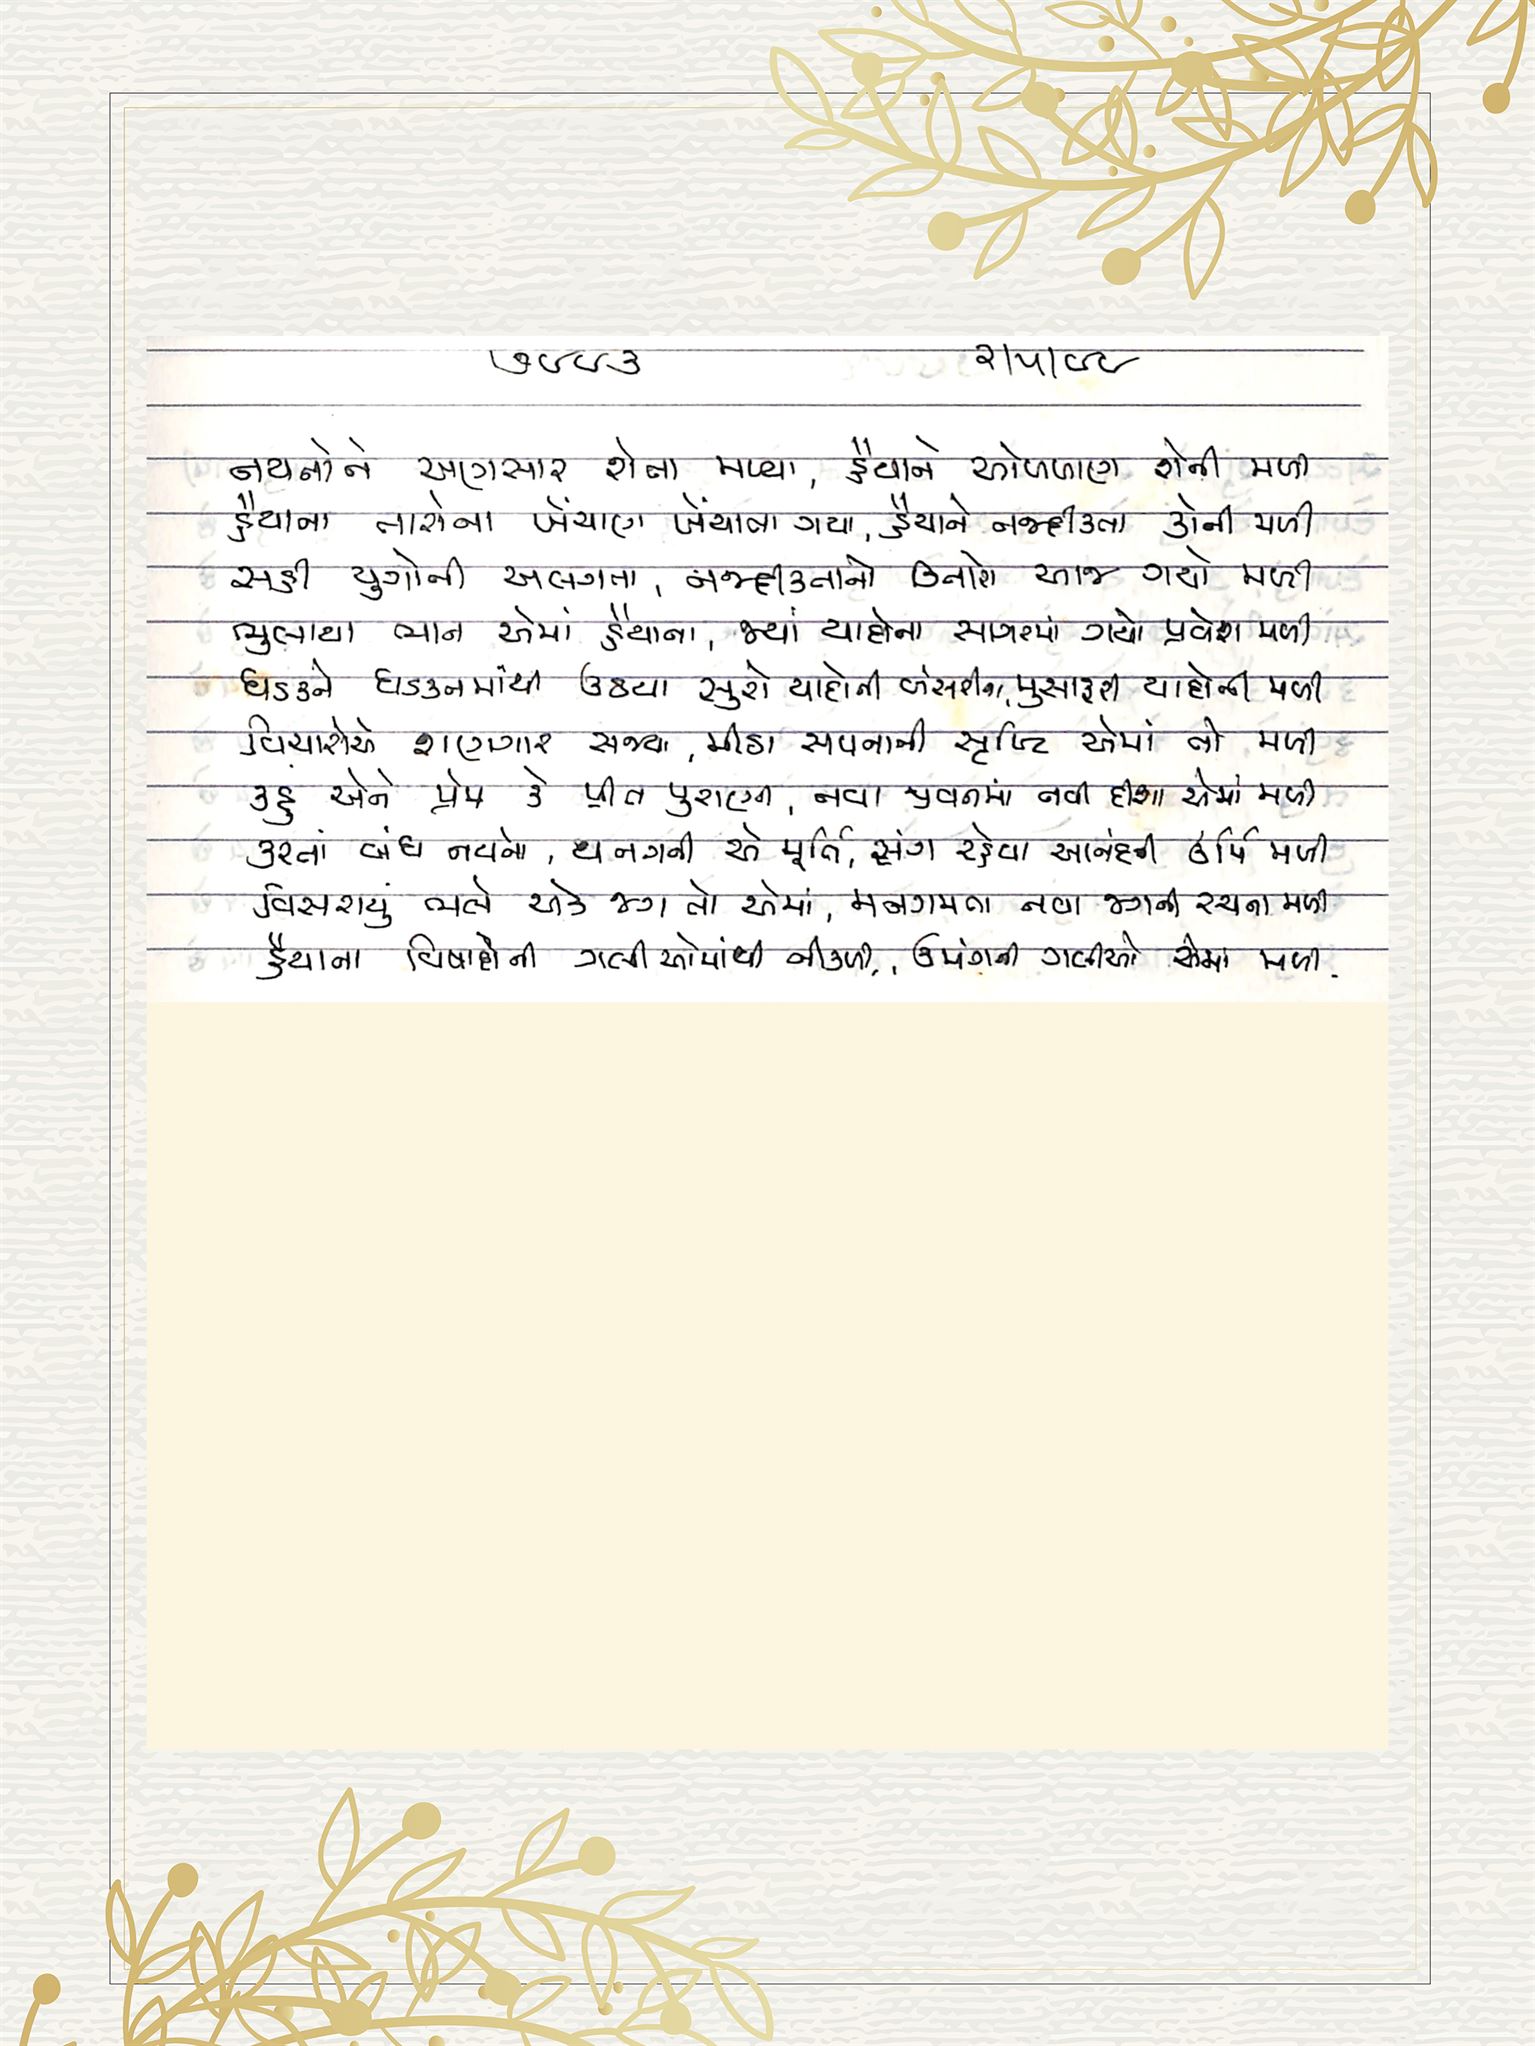 ૭૯૯૩ ૨/૫/૯૯
નયનોને અણસાર શેના મળ્યા, હૈયાને ઓળખાણ શેની મળી
હૈયાના તારોના ખેંચાણ ખેંચાતા ગયા, હૈયાને નજદીકતા કોની મળી
સદી યુગોની અલગતા, નજદીકતાનો કિનારો આજ ગયો મળી
ભુલાયા ભાન એમાં હૈયાના, જ્યાં યાદોના સાગરમાં ગયો પ્રવેશ મળી
ધડકને ધડકનમાંથી ઉઠયા સુરો યાદોની બંસરીના, મુસાફરી યાદોની મળી
વિચારોએ શણગાર સજ્યા, મીઠા સપનાની સૃષ્ટિ એમાં તો મળી
કહું એને પ્રેમ કે પ્રીત પુરાણી, નવા જીવનમાં નવી દીશા એમાં મળી
કરતાં બંધ નયનો, થનગની એ મૂર્તિ, સંગ રહેવા આનંદની ઉર્મિ મળી
વિસરાયું ભલે એક જગ તો એમાં, મનગમતા નવા જગની રચના મળી
હૈયાના વિષાદોની ગલીઓમાંથી નીકળી, ઉમંગની ગલીઓ એમાં મળી.